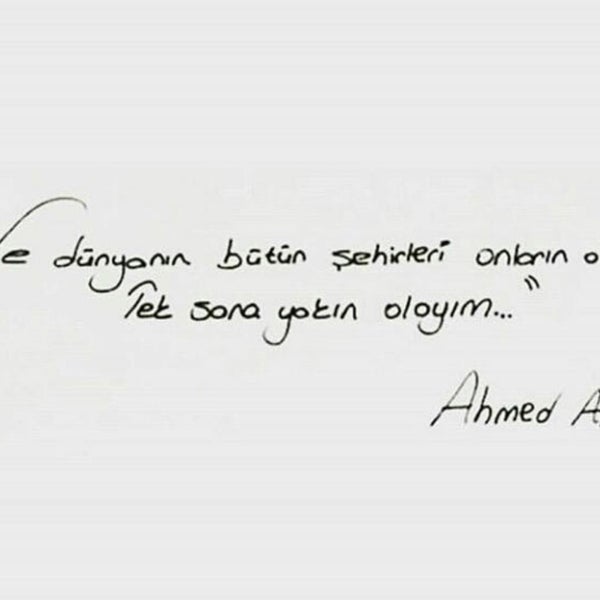 Ve dünyanın bütün şehirleri onların o
Tek sana yakın olayım..."
Ahmed A